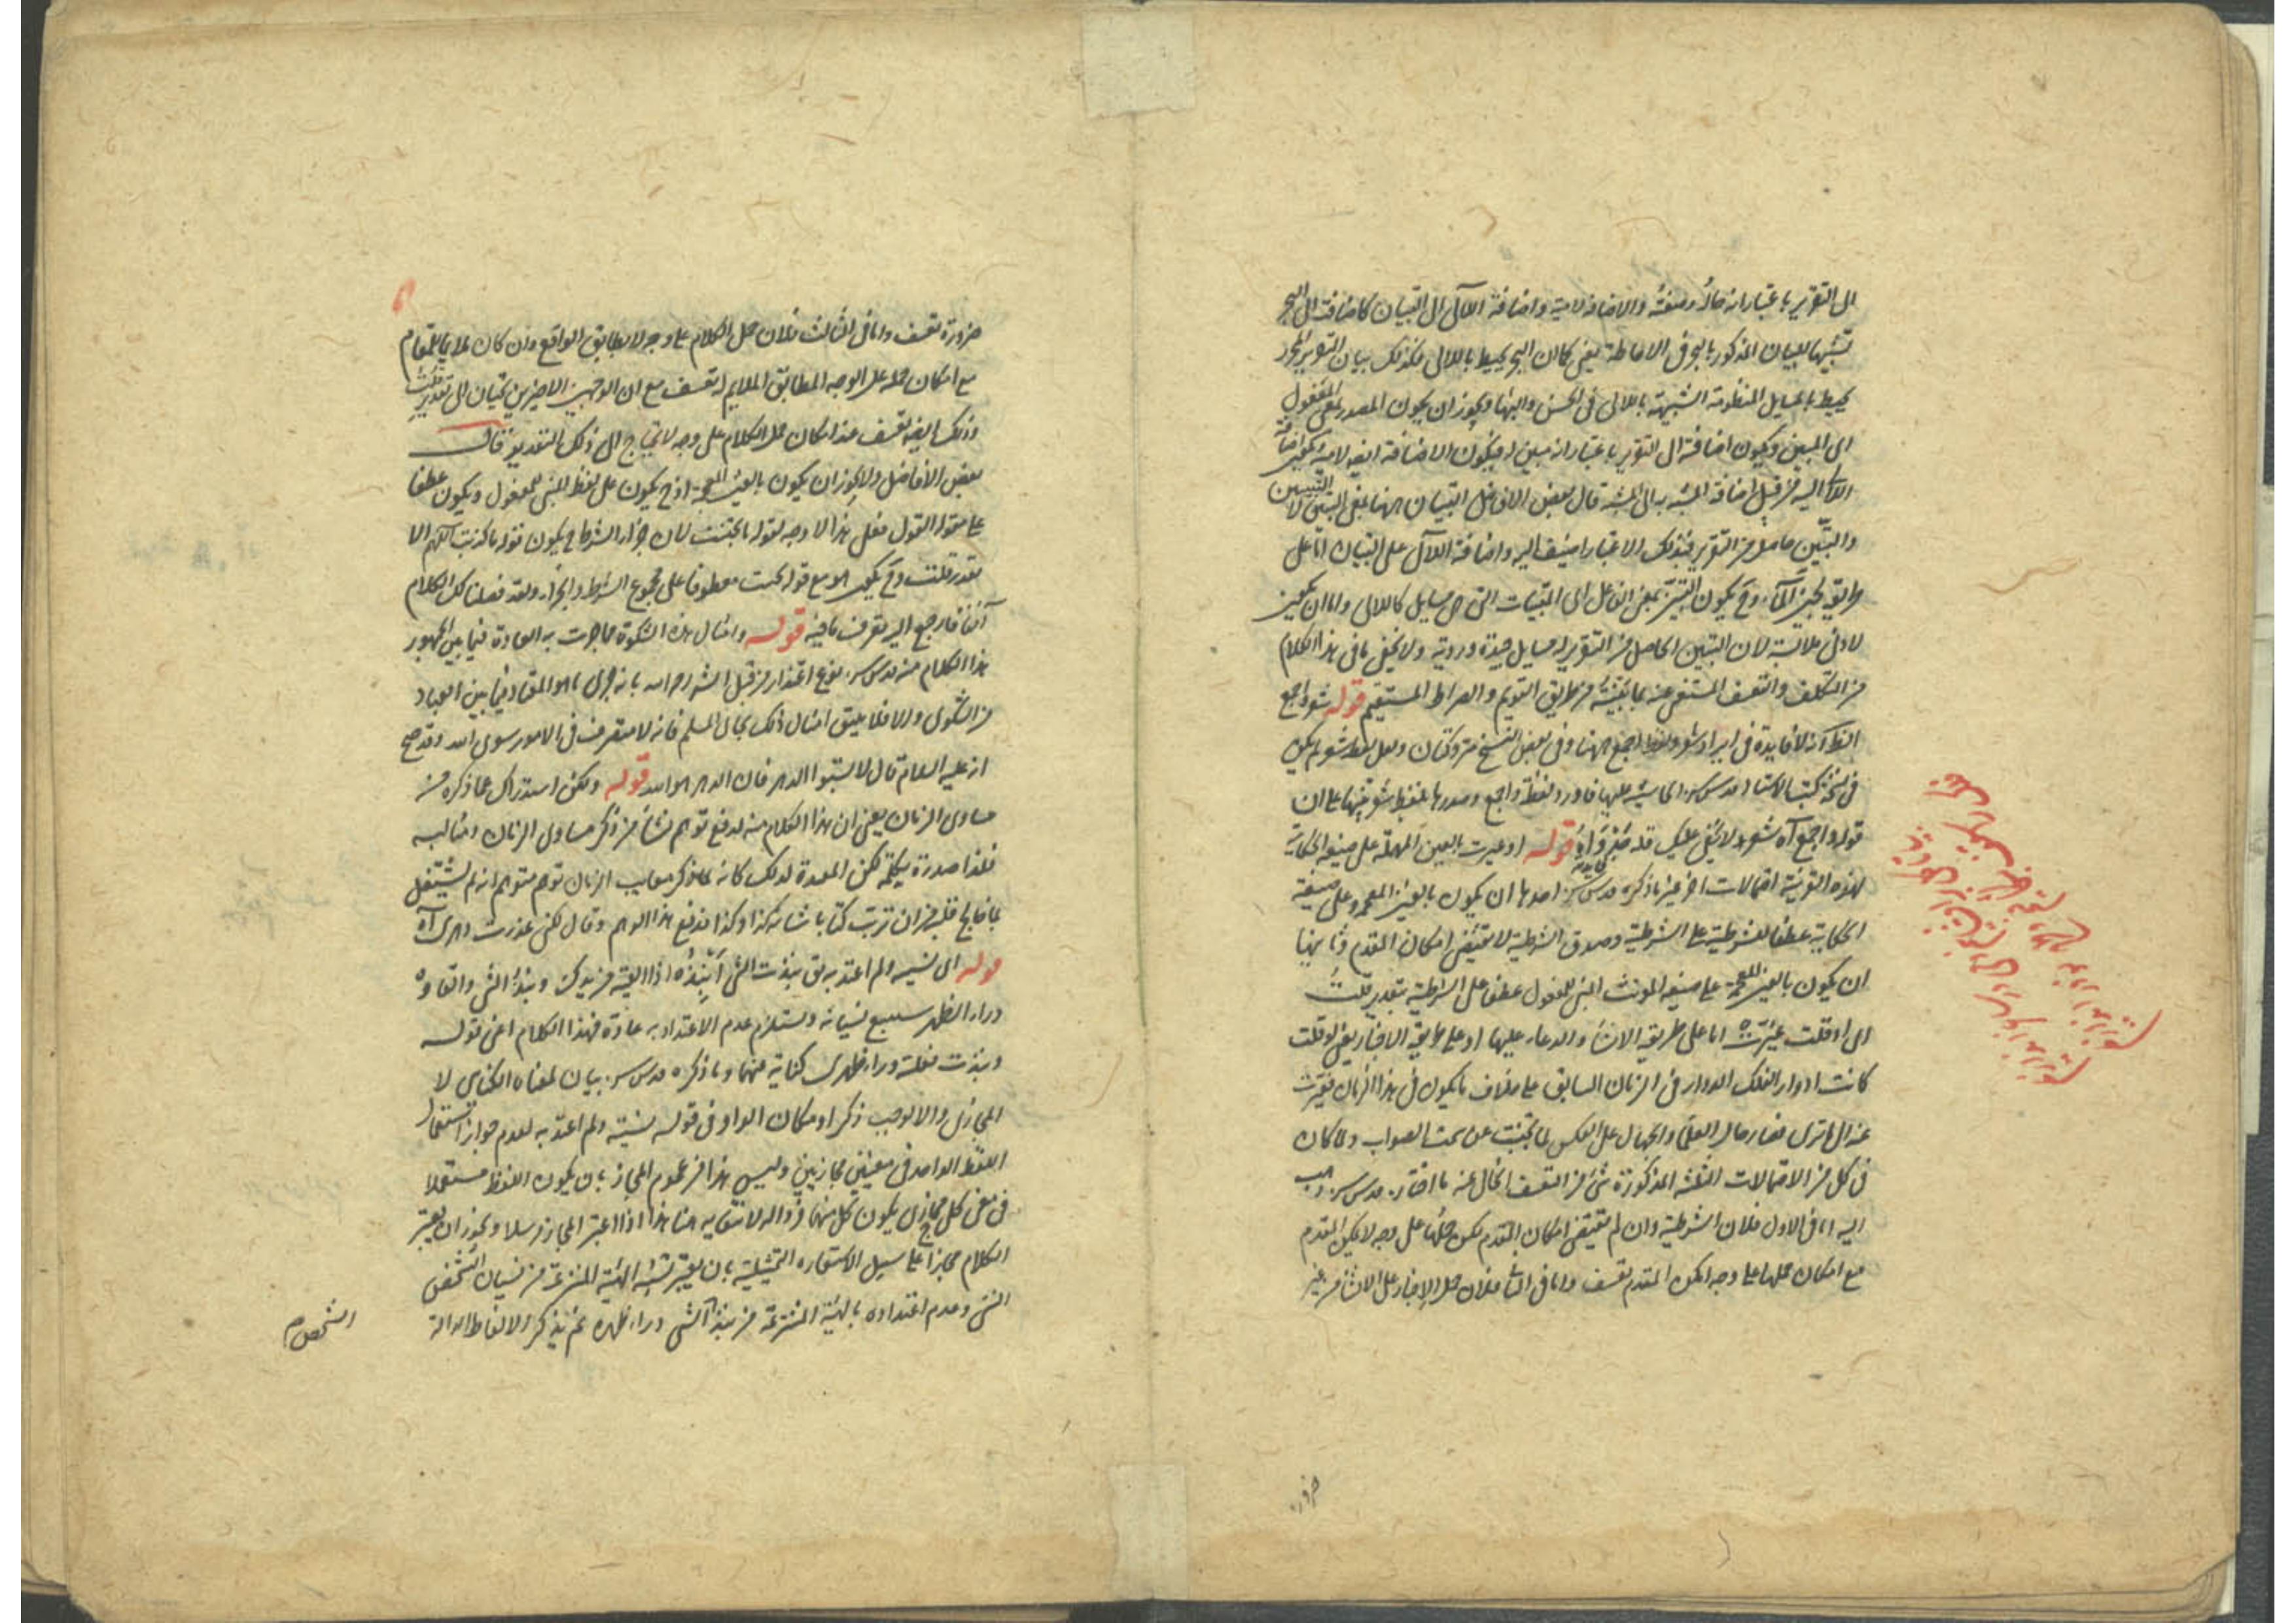 الى التقرير باعتبار انه حاله وصفته والاضافة لامية واضافة اللآلى الى التبيان كاضافته الى البحر
تشبيها للبيان المذكور بالبحر فى الاحاطة يعنى كما ان البحر يحيط باللالى فكذلك بيان التقرير المحرر
يحيط بالمسايل المنظومة الشبيهة باللالى فى الحسن والبها ويجوز ان يكون المصدر بمعنى المفعول
اى المبين ويكون اضافته الى التقرير باعتبار انه مبين له فيكون الاضافة ايضا لامية
اليه من قبيل اضافة المشبه به الى المشبه قال بعض الافاضل التبيان ههنا بمعنى التبين لا التبيين
والتبين حاصل من التقرير فبذلك الاعتبار اضيف اليه واضافة اللآلى على التبيان اما على
طريق لجين الماء وح يكون التبين بمعنى الفاعل اى المتبينات التى هى مسايل كاللالى واما ان يكون
لادنى ملابسة لان التبين الحاصل من التقرير له مسايل جيدة وردية ولا يخفى ما فى هذا الكلام
من التكلف والتعسف المستغنى عنه بما بينته من طريق القويم والصراط المستقيم قوله شعر واجمع
الظ انه لا فايدة فى ايراد شعر ولفظ اجمع ههنا وفى بعض النسخ متروكتان ولعل لفظ شعر لم يكن
فى نسخة كتب الاستاد قدس سره الحاشية عليها فاورد لفظ واجمع وصدرها بلفظ شعر تنبيها على ان
قوله واجمع آه شعر ولا يخفى عليك قوله او عيرت بالعين المهملة على صيغة الحكاية
لهذه القرينة احتمالات اخر غير ما ذكره قدس سره احدها ان يكون بالغين المعجمة وعلى صيغة
الحكاية عطفا للشرطية على الشرطية وصدق الشرطية لا يقتضى امكان المقدم وثانيها
ان يكون بالغين المعجمة على صيغة المونث المبنى للمفعول عطفا على الشرطية بتقدير قلت
اى او قلت غيرت اما على طريقة الانشاء والدعاء عليها او على طريقة الاخبار يعنى لو قلت
كانت ادوار الفلك الدوار فى الزمان السابق على خلاف ما يكون فى هذا الزمان فغيرت
عنه الى ما ترى فصار حال العلما والجهال على العكس لما تجنبت عن سمت الصواب ولما كان
فى كل من الاحتمالات الثلثة المذكورة شئ من التعسف الخال عنه ما اختاره قدس سره ذهب
اليه اما فى الاول فلان الشرطية وان لم يقتضى امكان المقدم لكن حملها على وجه لا يمكن المقدم
مع امكان حملها على وجه امكن المقدم تعسف واما فى الثانى فلان حمل الاخبار على الانشاء من غير
ضرورة
ضرورة تعسف واما فى الثالث فلان حمل الكلام على وجه لا يطابق الواقع وان كان ملايما للمقام
مع امكان حمله على الوجه المطابق الملايم له تعسف مع ان الوجهين الاخيرين يحتاجان الى تقدير قلت
وذلك ايضا تعسف عند امكان حمل الكلام على وجه لا يحتاج الى ذلك التقدير قال
بعض الافاضل ولا يجوز ان يكون بالغين المعجمة اذ ح يكون على لفظ المبنى للمفعول ويكون عطفا
على مقول القول فعلى هذا لا وجه لقوله لما تجنبت لان جزاء الشرط ح يكون قوله ما كذبت اللهم الا
بقدر قلت وح يكون هو مع قوله تجنبت معطوفا على مجموع الشرط والجزاء ولقد فصلنا لك الكلام
آنفا فارجع اليه تعرف ما فيه قوله وامثال هذه الشكوة مما جرت به العادة فيما بين الجمهور
هذا الكلام منه قدس سره نوع اعتذار من قبل الشه رحمه الله بانه جرى ما هو المعتاد فيما بين العباد
من الشكوى والا فلا يليق امثال ذلك بحال المسلم فانه لا متصرف فى الامور سوى الله وقد صح
انه عليه السلام قال لا تسبوا الدهر فان الدهر هو الله قوله ولكن استدراك عما ذكره من
مساوى الزمان يعنى ان هذا الكلام منه لدفع توهم نشأ من ذكر مساوى الزمان ومثالبه
فلذا صدره بكلمة لكن المعدة لذلك كانه لما ذكر معايب الزمان توهم متوهم انه لم يشتغل
بما فى قلبه من ان ترتب كتابا شانه كذا وكذا فدفع هذا الوهم وقال لكنى عذرت دهرى آه
قوله اى نسيته ولم اعتد به يق نبذت الشى انبذه اذا القيته من يدك ونبذ الشى والقاوه
وراء الظهر سبب نسيانه ومستلزم عدم الاعتداد به عادة فهذا الكلام اعنى قوله
ونبذت فعلته وراء ظهرى كناية عنهما وما ذكره قدس سره بيان لمعناه الكنايى لا
المجازى والا لوجب ذكر او مكان الواو فى قوله نسيته ولم اعتد به لعدم جواز استعمال
اللفظ الواحد فى معنيين مجازيين وليس هذا من عموم المجاز بان يكون اللفظ مستعملا
فى معنى كلى مجازى يكون كل منهما فردا له لانتفايه هنا هذا اذا اعتبر المجاز مرسلا ويجوز ان يعتبر
الكلام مجازا على سبيل الاستعارة التمثيلية بان يعتبر تشبيه الهيئة المنتزعة من نسيان الشخص
الشى وعدم اعتداده بالهيئة المنتزعة من نبذ الشى وراء ظهره ثم يذكر الالفاظ الدالة